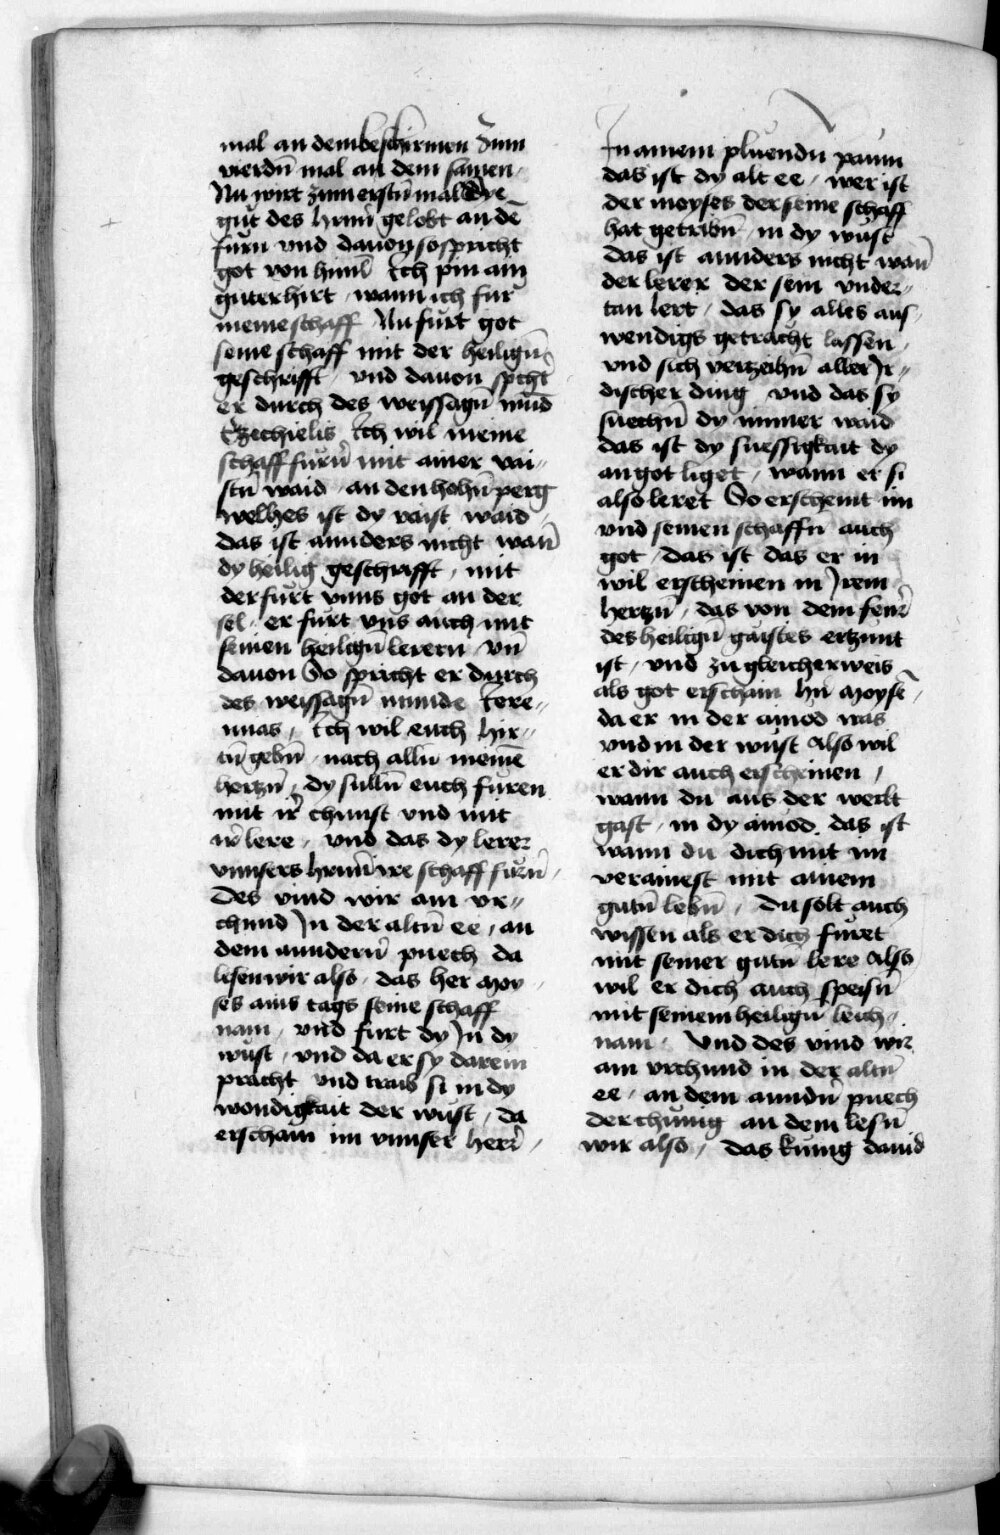 mal an dem beschirmen Zum
vierdn̄ mal an dem samen
Nu wirt zum erstn̄ mal dye
gut des hrnn̄ gelobt an de͞
furn vnd dauon so spricht
got von himl̄ Ich pin ain
guter hirt wann ich fur
meine schaff Nu furt got
seine schaff mit der heilign̄
geschrifft vnd dauon spcht
er durch des weissagn̄ mu͞d
Ezechielis Ich wil meine
schaff furn̄ mit ainer vai⸗
stn̄ waid an den hohn̄ perg
welhes ist dy vaist waid
das ist annders nicht wan̄
dy heilig geschrifft mit
der furt vnns got an der
sel er furt vns auch mit
seinen heilign̄ lerern vn̄
dauon So spricht er durch
des weissagn̄ munde Iere⸗
mias Ich wil euch hir⸗
tn̄ gebn̄ nach alln meine͞
hertzn̄ dy sulln̄ euch furen
mit ir̄ chunst vnd mit
ir̄ lere vnd das dy lerer
vnnsers hrnn̄ ire schaff furn̄
Des vind wir ain vr⸗
chund In der altn̄ ee an
dem anndern̄ puech da
lesen wir also das her moy
ses ains tags seine schaff
nam vnd furt dy In dy
wust vnd da er sy darein
pracht vnd traib si in dy
wondigkait der wust da
erschain im vnnser herr̄
In ainem pluendn paum
das ist dy alt ee wer ist
der moyses der seine schaff
hat getribn̄ in dy wust
das ist annders nicht wan̄
der lerer der sein vnder⸗
tan lert das sy alles aus
wendigs getracht lassen
vnd sich verzeihn̄ aller Ir⸗
discher ding vnd das sy
suechn̄ dy inner waid
das ist dy suessigkait dy
an got liget wann er si
also leret So erscheint im
vnd seinen schaffn auch
got das ist das er in
wil erscheinen in Irem
hertzn̄ das von dem feur̄
des heilign̄ gaistes ertzunt
ist vnd zu gleicher weis
als got erschain hn̄ moyse͞
da er in der ainod was
vnd in der wust Also wil
er dir auch erscheinen
wann du aus der werlt
gast in dy ainod das ist
wann du dich mit im
verainest mit ainem
gutn̄ lebn̄ du solt auch
wissen als er dich furet
mit seiner gutn̄ lere Also
wil er dich auch speisn̄
mit seinem heilign̄ leich⸗
nam Vnd des vind wir
ain vrchund in der altn̄
ee an dem anndn̄ puech
der chunig an dem lesn̄
wir also das kunig dauid